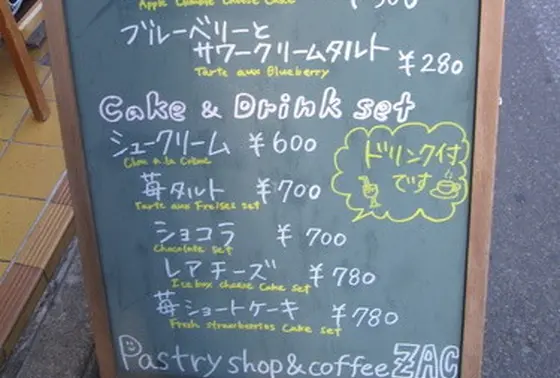 Apple Crumble Cheese Cake
ブルーベリーと
サワークリームタルト ¥280
Tarte aux Blueberry
Cake & Drink set
シュークリーム ¥600
Chou a la Crème
ドリンク付
です
苺タルト ¥700
Tarte aux Freises set
ショコラ ¥700
Chocolate set
レアチーズ ¥780
Ice box cheese Cake set
苺ショートケーキ ¥780
Fresh strawberries Cake set
Pastry shop & coffee ZAC